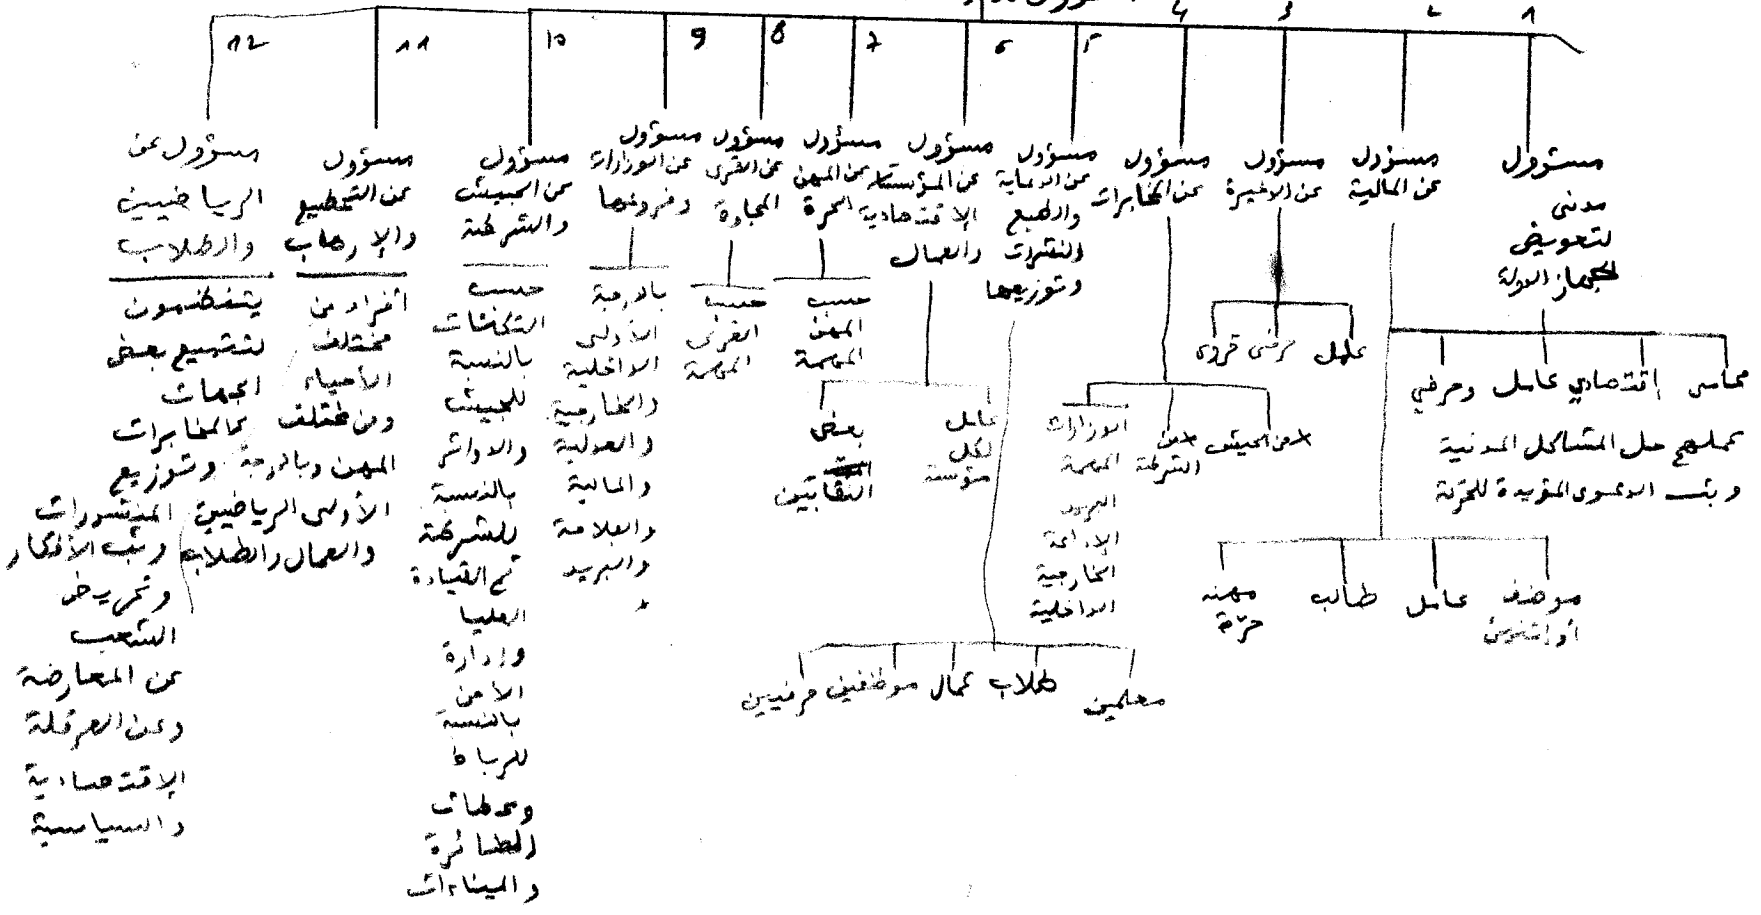 1
2
3
4
5
6
7
8
9
10
11
12
مسؤول
مدني
لتعويض
جهاز الدولة
محاسن
إقتصادي
عامل
وحرفي
عملهم حل المشاكل المدنية
و بث الدعوى المؤيدة للحركة
مسؤول
عن المالية
موضف
طالب
عامل
مهنة
حرة
مسؤول
عن الذخيرة
عامل
حرفي
قروي
مسؤول
عن المخابرات
من الجيش
من
الشرطة
الوزارات
المهمة
البريد
الإذاعة
الخارجية
الداخلية
مسؤول
عن الدعاية
والطبع
والنشرات
وتوزيعها
معلمين
طلاب
عمال
موظفين
حرفيين
مسؤول
عن المؤسسات
الإقتصادية
والعمال
عامل
لكل
مؤسسة
بعض
النقابيين
مسؤول
عن المهن
الحرة
حسب
المهن
المهمة
مسؤول
عن القرى
المجاورة
حسب
القرى
المهمة
مسؤول
عن الوزارات
وفروعها
بالدرجة
الأولى
الداخلية
والخارجية
والعدلية
والمالية
والفلاحة
والبريد
مسؤول
عن الجيش
والشرطة
حسب
الثكنات
بالنسبة
للجيش
والدوائر
بالنسبة
للشرطة
ثم القيادة
العليا
وإدارة
الأمن
بالنسبة
للرباط
ومحطات
الطائرة
والميناءات
مسؤول
عن التخطيط
والإرهاب
أفراد من
مختلف
الأحياء
ومن مختلف
المهن وبالدرجة
الأولى الرياضيين
والعمال والطلاب
مسؤول عن
الرياضيين
والطلاب
لتتبيع بعض
الجهات
كالمخابرات
وتوزيع
المنشورات
وبث الأفكار
وتحريض
الشعب
عن المعارضة
وعن العرقلة
الإقتصادية
والسياسية